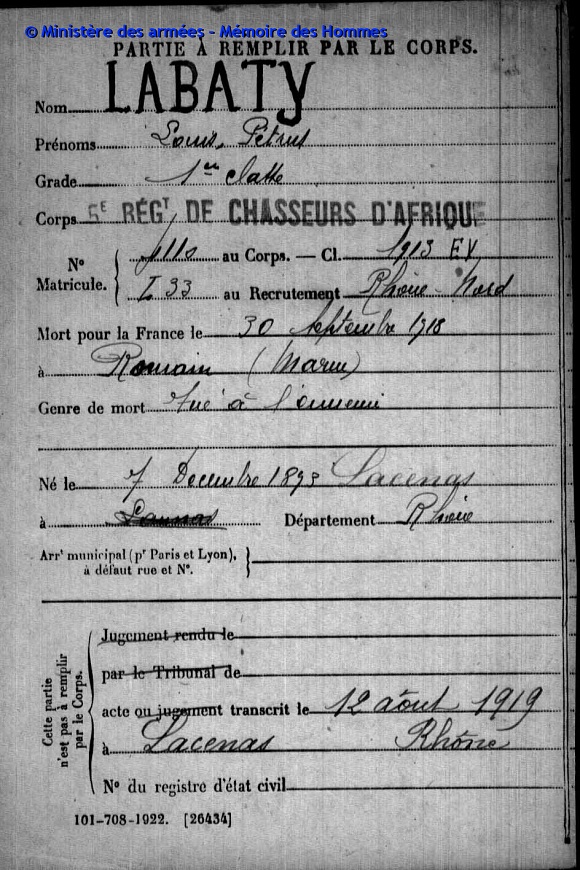 © Ministère des armées - Mémoire des Hommes
PARTIE À REMPLIR PAR LE CORPS.
Nom LABATY
Prénoms Louis, Pétrus
Grade 1re classe
Corps 5E RÉGT DE CHASSEURS D'AFRIQUE
No Matricule. { au Corps. — Cl. 1913 EV
I 33 au Recrutement Rhône-Nord
Mort pour la France le 30 Septembre 1918
à Romain (Marne)
Genre de mort Tué à l'ennemi
Né le 7 Décembre 1893 Lacenas
à Département Rhône
Arrt municipal (pr Paris et Lyon), }
à défaut rue et No.
Cette partie
n'est pas à remplir
par le Corps.
Jugement rendu le
par le Tribunal de
acte ou jugement transcrit le 12 août 1919
à Lacenas Rhône
No du registre d'état civil
101-708-1922. [26434]